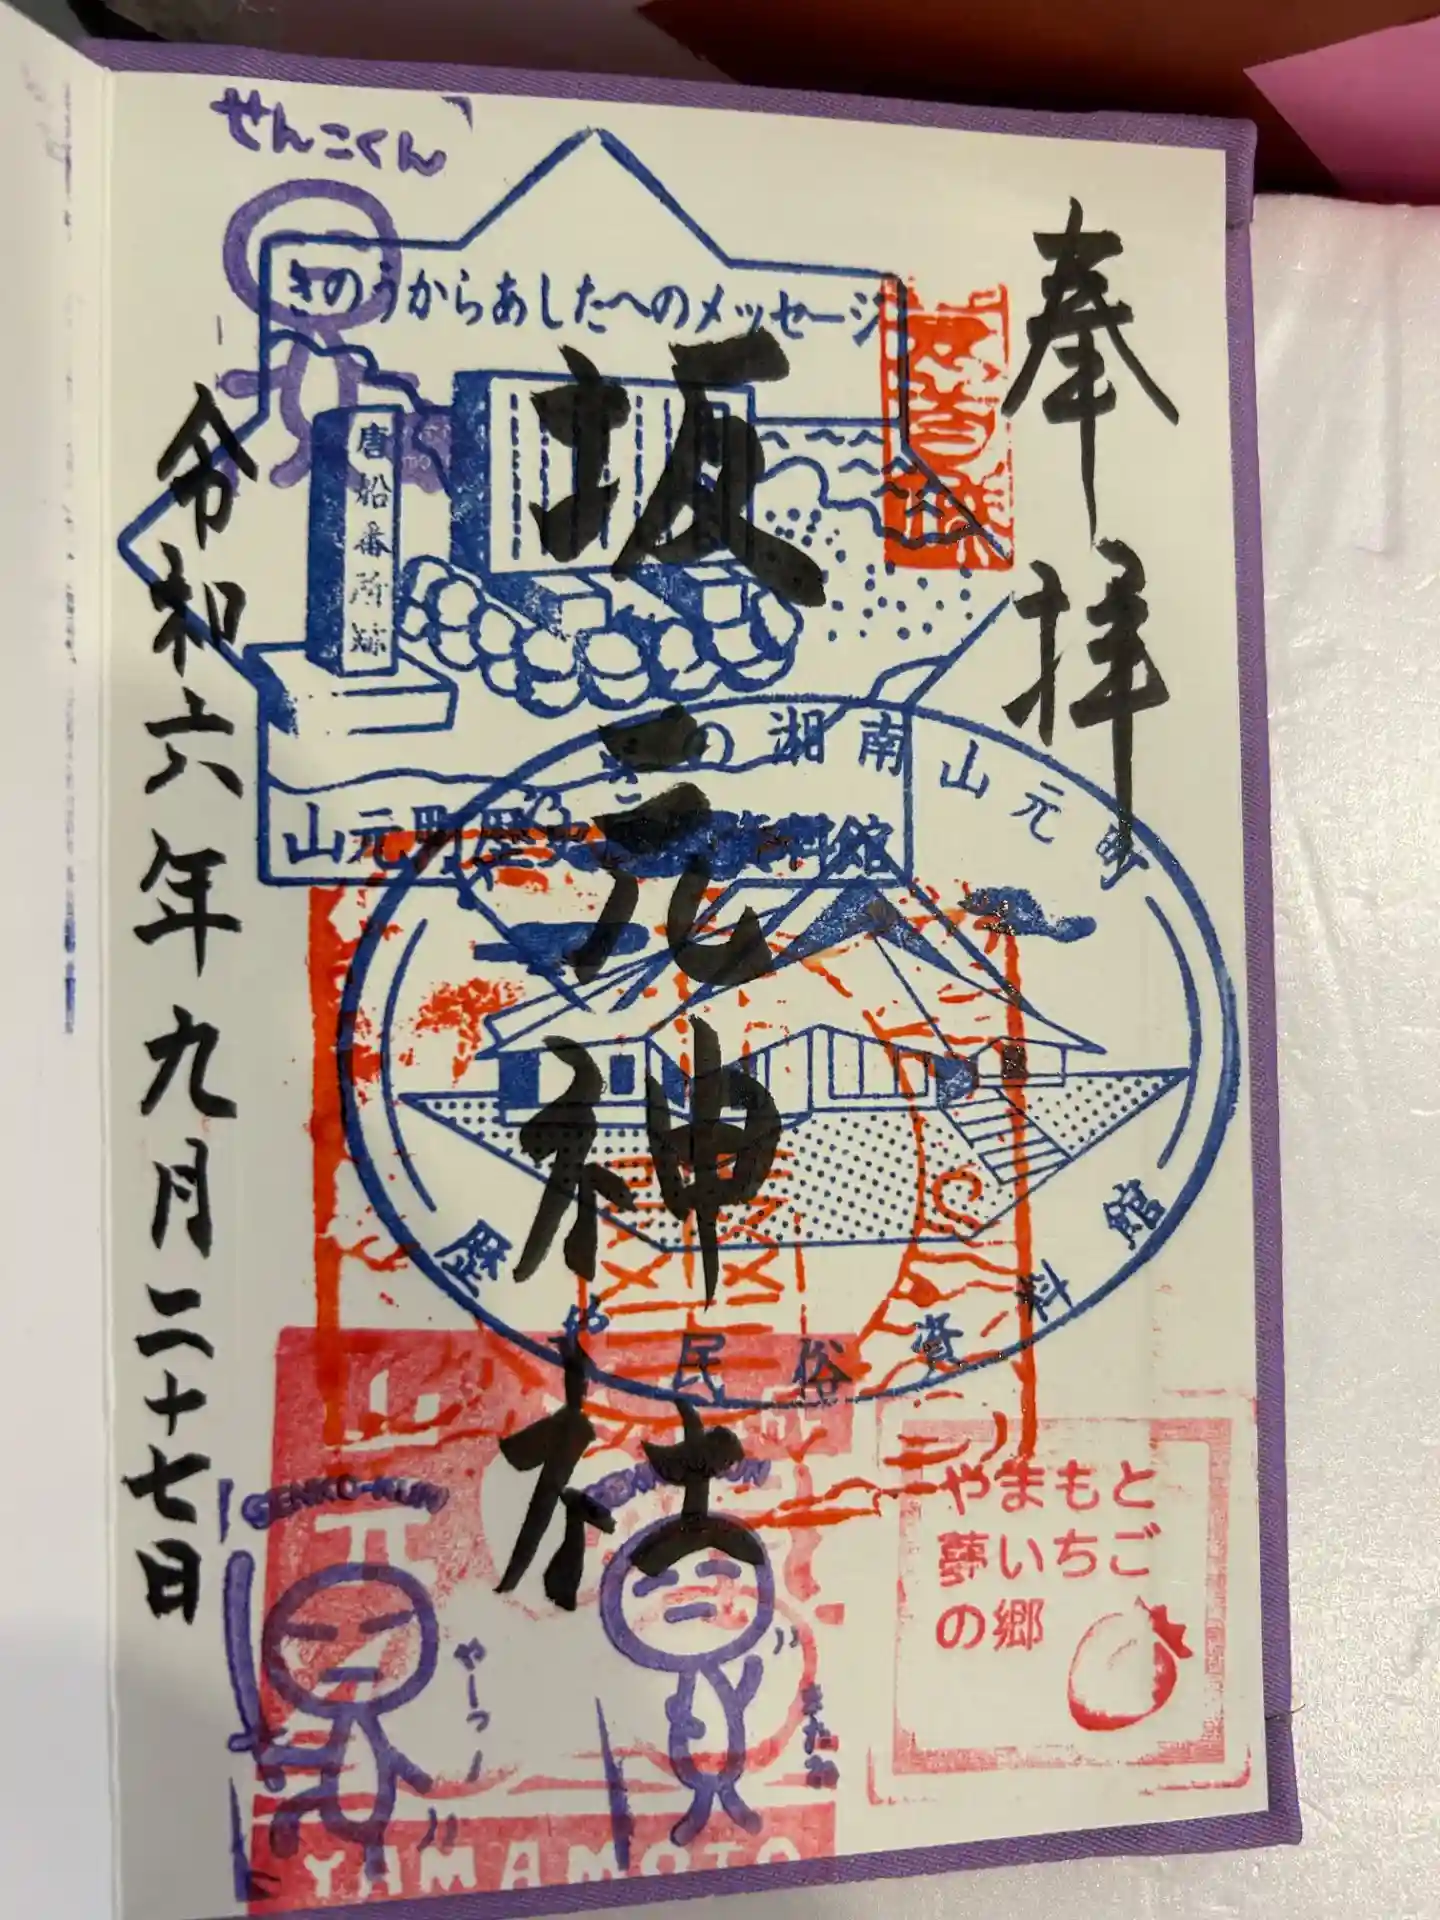 奉拝
坂元神社
令和六年九月二十七日
せんこくん
きのうからあしたへのメッセージ
唐船番所跡
山元町歴史民俗資料館
の湘南山元町
歴史民俗資料館
GENKO-KUN
やーっ!
またね
やまもと
夢いちご
の郷
YAMAMOTO